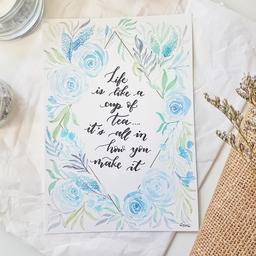 Life
is like a
cup of
tea....
it's all in
how you
make it